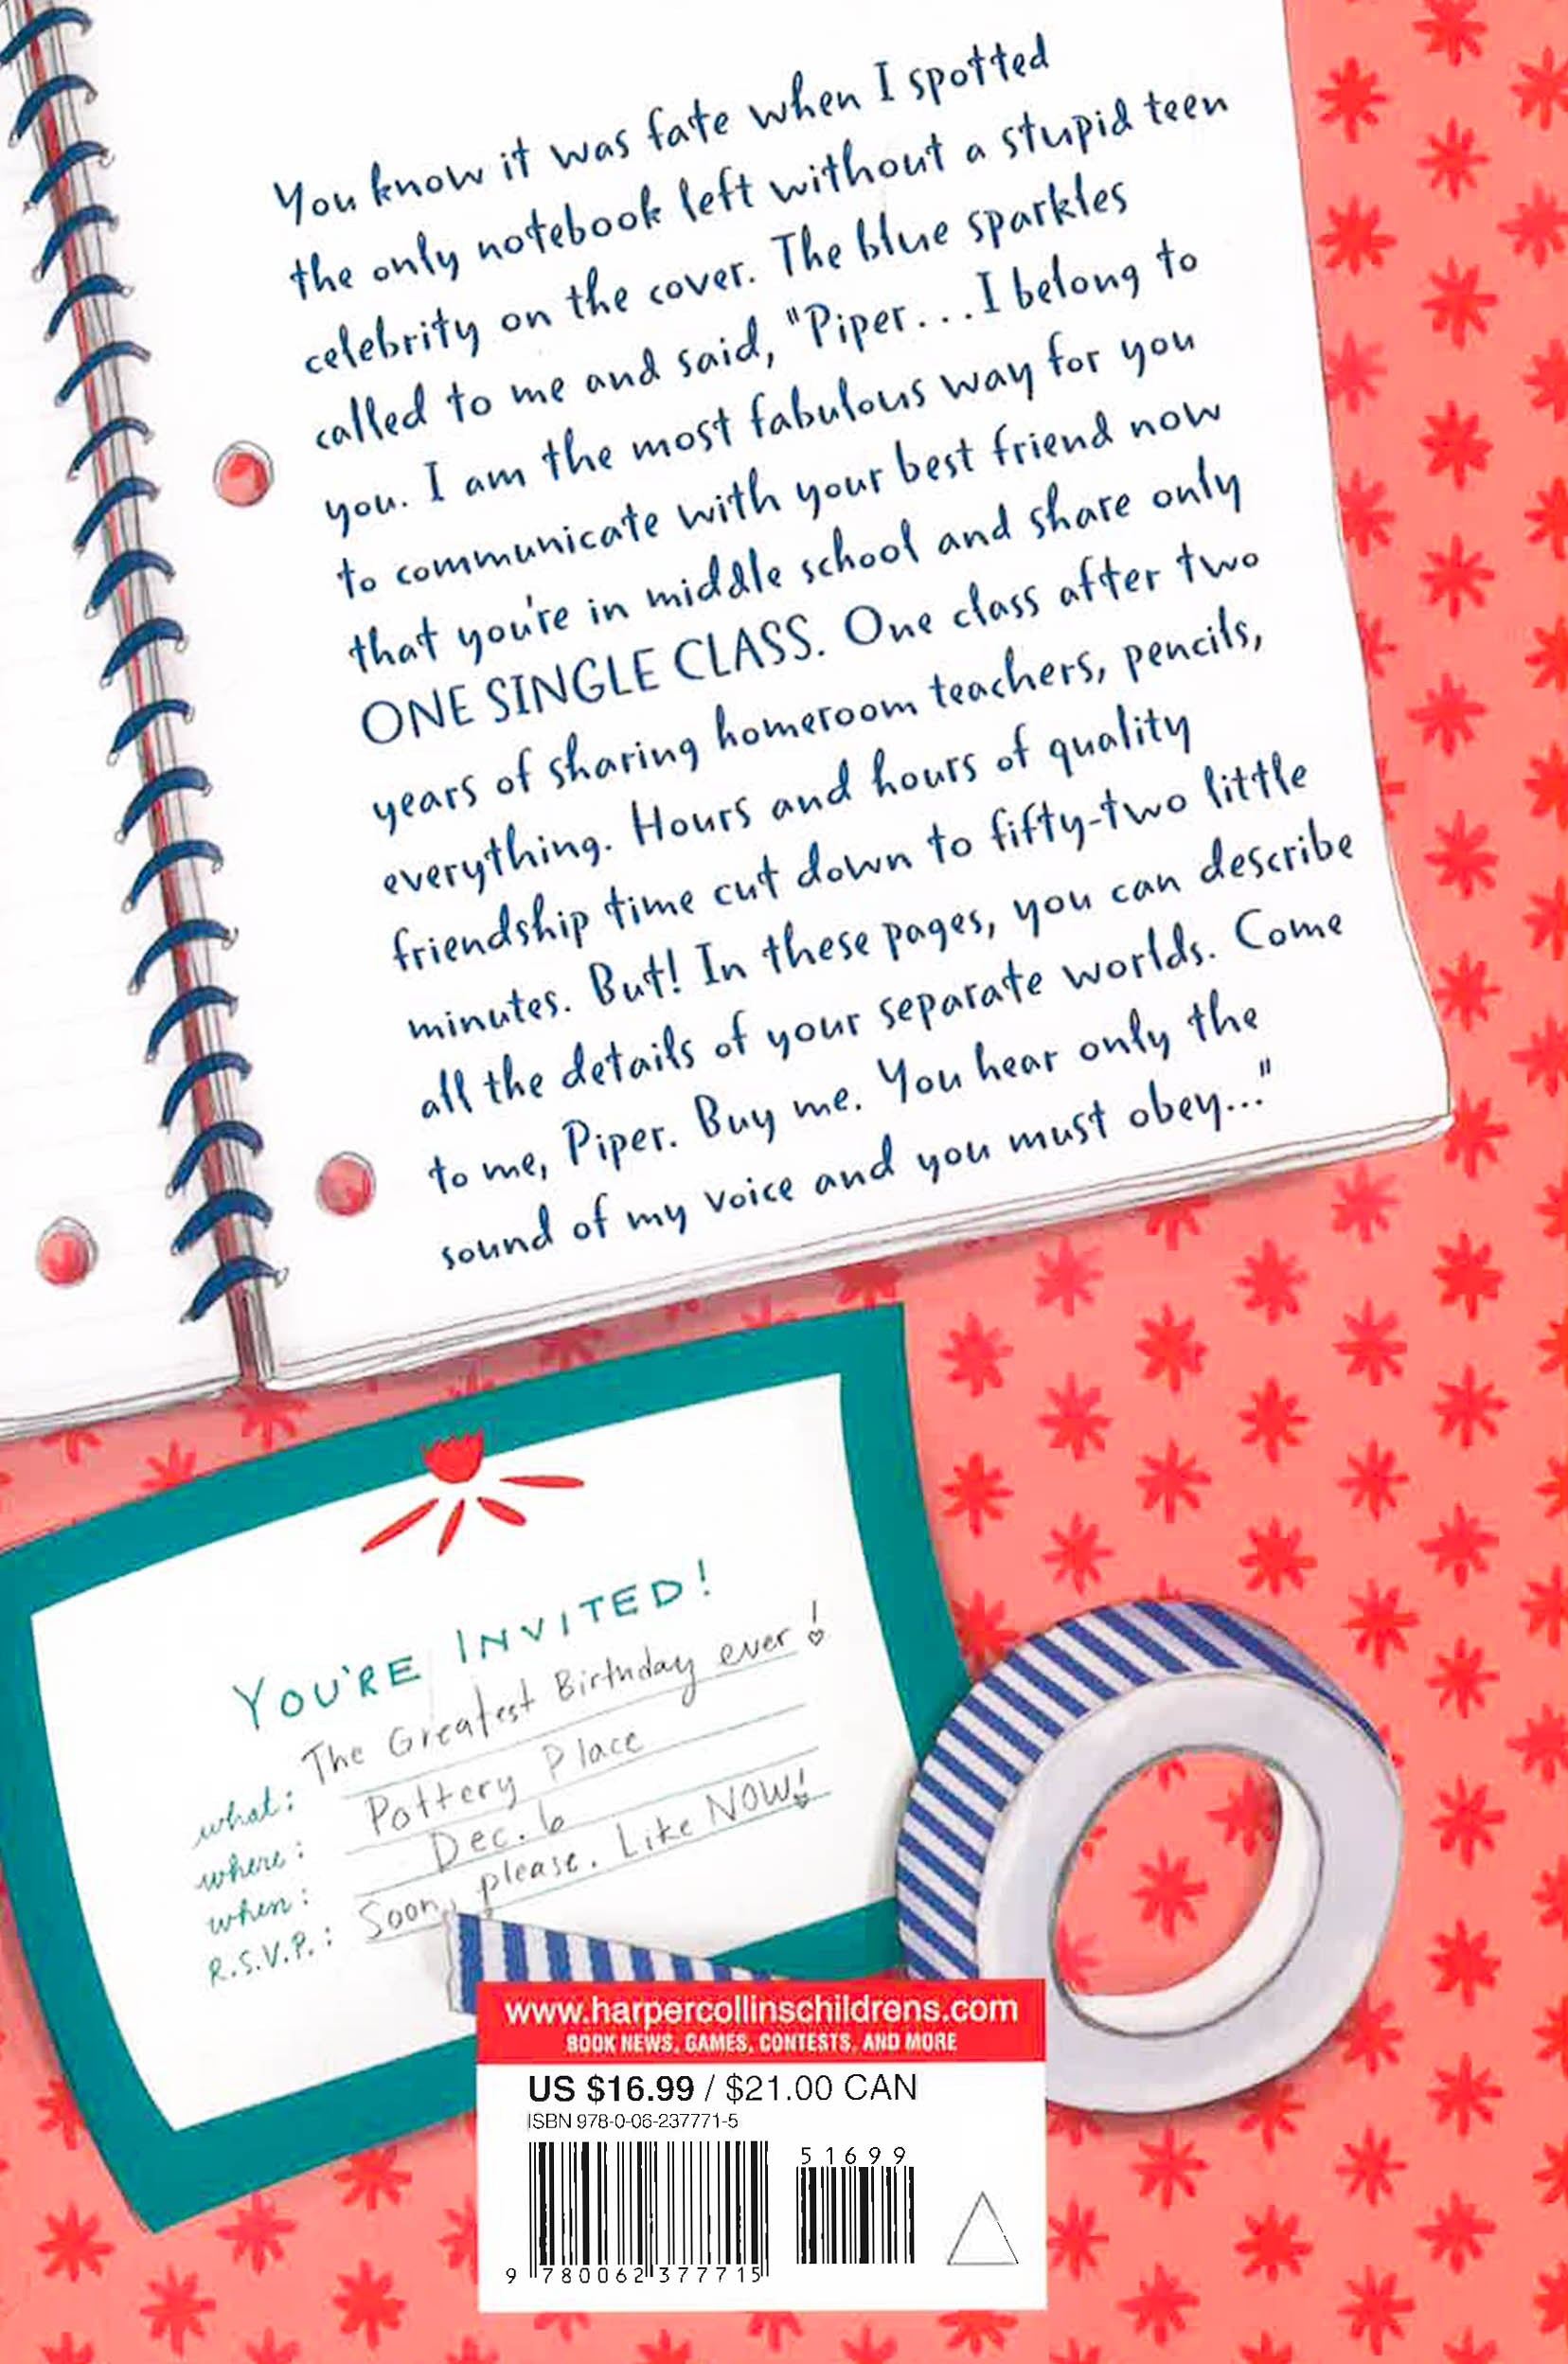 You know it was fate when I spotted
the only notebook left without a stupid teen
celebrity on the cover. The blue sparkles
called to me and said, "Piper...I belong to
you. I am the most fabulous way for you
to communicate with your best friend now
that you're in middle school and share only
ONE SINGLE CLASS. One class after two
years of sharing homeroom teachers, pencils,
everything. Hours and hours of quality
friendship time cut down to fifty-two little
minutes. But! In these pages, you can describe
all the details of your separate worlds. Come
to me, Piper. Buy me. You hear only the
sound of my voice and you must obey..."
YOU'RE INVITED!
what: The Greatest Birthday ever!
where: Pottery Place
when: Dec. 6
R.S.V.P.: Soon, please. Like NOW!
www.harpercollinschildrens.com
BOOK NEWS, GAMES, CONTESTS, AND MORE
US $16.99 / $21.00 CAN
ISBN 978-0-06-237771-5
51699
9 780062 377715